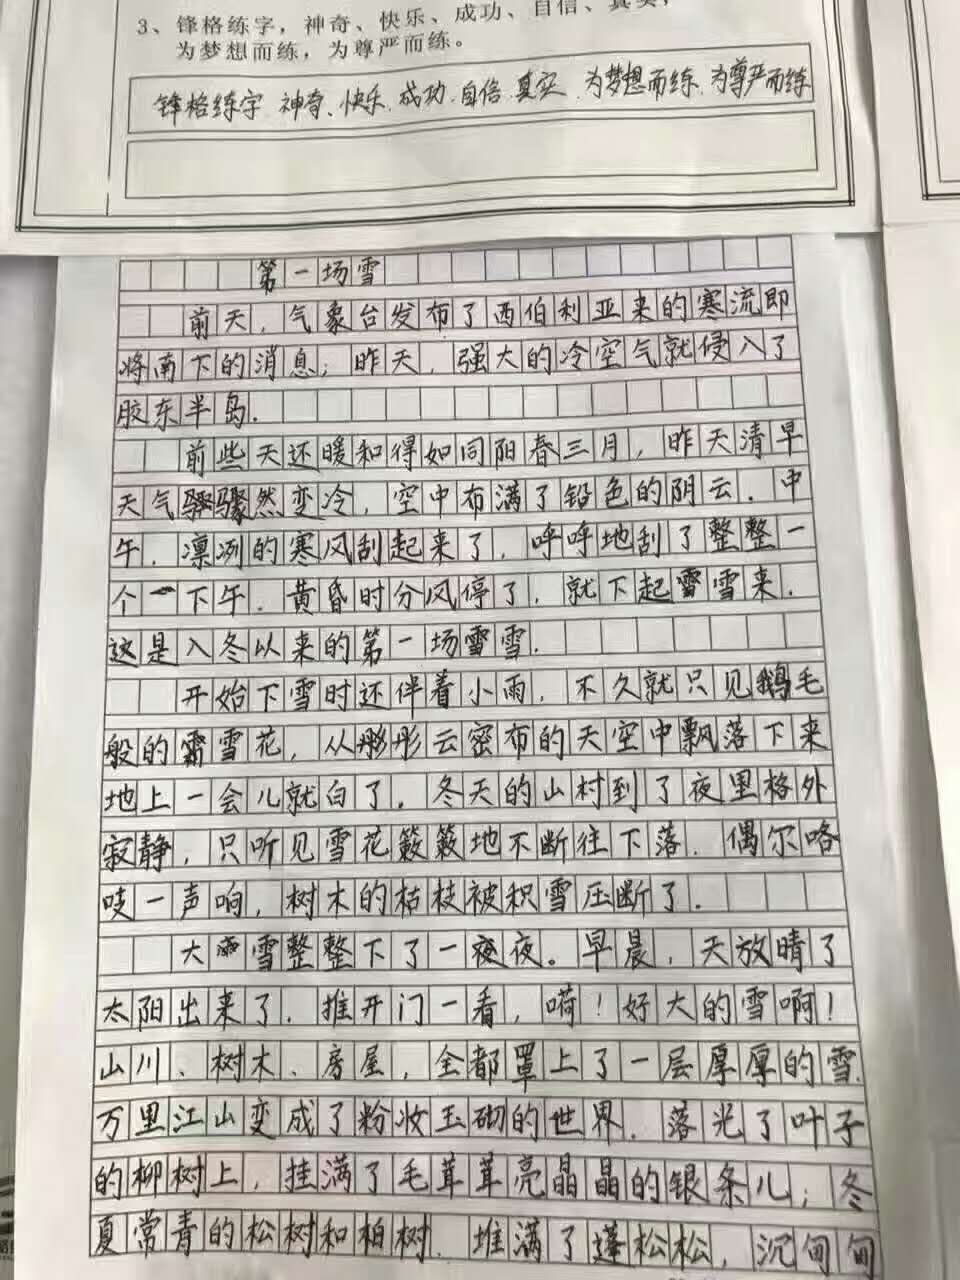 3、锋格练字，神奇、快乐、成功、自信、真实，
为梦想而练，为尊严而练。
锋格练字.神奇、快乐.成功.自信.真实.为梦想而练.为尊严而练
第一场雪
前天，气象台发布了西伯利亚来的寒流即
将南下的消息；昨天，强大的冷空气就侵入了
胶东半岛.
前些天还暖和得如同阳春三月，昨天清早
天气骤骤然变冷，空中布满了铅色的阴云.中
午，凛冽的寒风刮起来了，呼呼地刮了整整一
个一下午.黄昏时分风停了，就下起雪雪来.
这是入冬以来的第一场雪雪.
开始下雪时还伴着小雨，不久就只见鹅毛
般的雪雪花，从彤彤云密布的天空中飘落下来
地上一会儿就白了.冬天的山村到了夜里格外
寂静，只听见雪花簌簌地不断往下落.偶尔咯
吱一声响，树木的枯枝被积雪压断了.
大雪整整下了一夜夜。早晨，天放晴了
太阳出来了.推开门一看，嗬！好大的雪啊！
山川、树木、房屋，全都罩上了一层厚厚的雪.
万里江山变成了粉妆玉砌的世界.落光了叶子
的柳树上，挂满了毛茸茸亮晶晶的银条儿；冬
夏常青的松树和柏树.堆满了蓬松松，沉甸甸